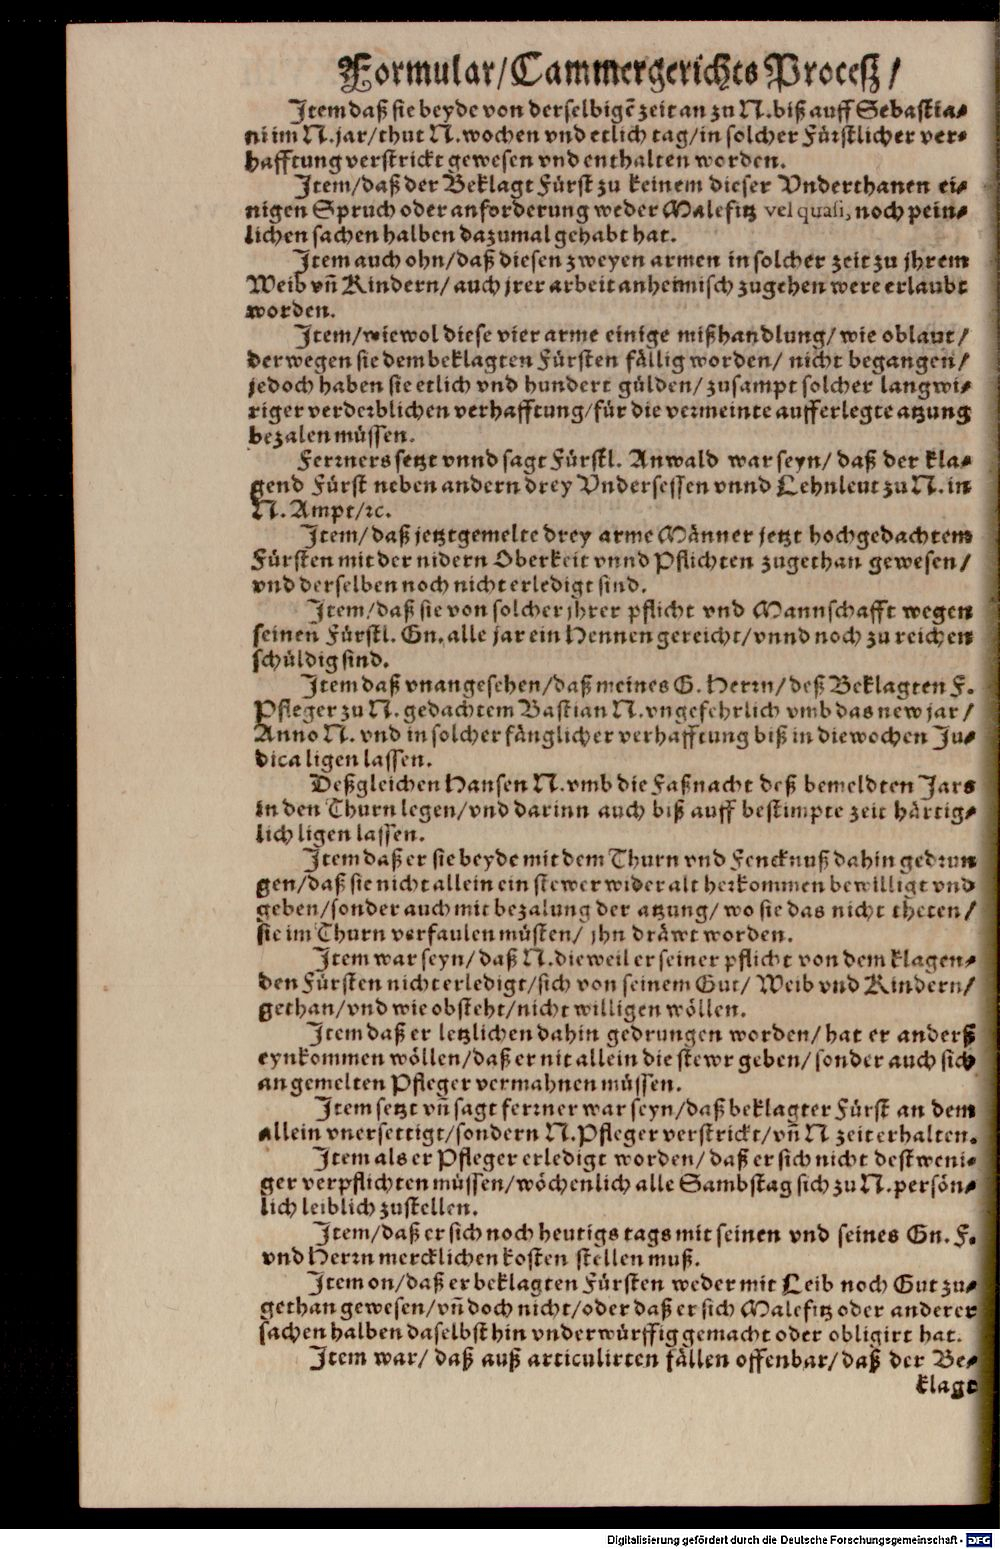 Formular/Cammergerichts Proceß/
Item daß sie beyde von derselbigẽ zeit an zu N. biß auff Sebastia-
ni im N. jar/thut N. wochen vnd etlich tag/in solcher Fürstlicher ver-
hafftung verstrickt gewesen vnd enthalten worden.
Item/daß der Beklagt Fürst zu keinem dieser Vnderthanen ei-
nigen Spruch oder anforderung weder Malefitz vel quasi, noch pein-
lichen sachen halben dazumal gehabt hat.
Item auch ohn/daß diesen zweyen armen in solcher zeit zu jhrem
Weib vñ Kindern/ auch jrer arbeit anheimisch zugehen were erlaubt
worden.
Item/wiewol diese vier arme einige mißhandlung/wie oblaut/
derwegen sie dem beklagten Fürsten fällig worden/ nicht begangen/
jedoch haben sie etlich vnd hundert gülden/zusampt solcher langwi-
riger verderblichen verhafftung/für die vermeinte aufferlegte atzung
bezalen müssen.
Ferrners setzt vnnd sagt Fürstl. Anwald war seyn/ daß der kla-
gend Fürst neben andern drey Vndersessen vnnd Lehnleut zu N. in
N. Ampt/ꝛc.
Item/daß jetztgemelte drey arme Männer jetzt hochgedachtem
Fürsten mit der nidern Oberkeit vnnd Pflichten zugethan gewesen/
vnd derselben noch nicht erledigt sind.
Item/daß sie von solcher jhrer pflicht vnd Mannschafft wegen
seinen Fürstl. Gn. alle jar ein Hennen gereicht/vnnd noch zu reichen
schüldig sind.
Item daß vnangesehen/daß meines G. Herrn/deß Beklagten F.
Pfleger zu N. gedachtem Bastian N. vngefehrlich vmb das new jar/
Anno N. vnd in solcher fänglicher verhafftung biß in die wochen Ju-
dica ligen lassen.
Deßgleichen Hansen N. vmb die Faßnacht deß bemeldten Jars
in den Thurn legen/vnd darinn auch biß auff bestimpte zeit härtig-
lich ligen lassen.
Item daß er sie beyde mit dem Thurn vnd Fencknuß dahin gedrun
gen/daß sie nicht allein ein stewer wider alt herkommen bewilligt vnd
geben/sonder auch mit bezalung der atzung/ wo sie das nicht theten/
sie im Thurn verfaulen müsten/ jhn dräwt worden.
Item war seyn/ daß N. dieweil er seiner pflicht von dem klagen-
den Fürsten nicht erledigt/sich von seinem Gut/ Weib vnd Kindern/
gethan/vnd wie obsteht/nicht willigen wöllen.
Item daß er letzlichen dahin gedrungen worden/ hat er anderß
eynkommen wöllen/daß er nit allein die stewr geben/sonder auch sich
an gemelten Pfleger vermahnen müssen.
Item setzt vñ sagt ferrner war seyn/daß beklagter Fürst an dem
allein vnersettigt/sondern N. Pfleger verstrickt/vñ N zeit erhalten.
Item als er Pfleger erledigt worden/ daß er sich nicht destweni-
ger verpflichten müssen/wöchenlich alle Sambstag sich zu N. persön-
lich leiblich zustellen.
Item/daß er sich noch heutigs tags mit seinen vnd seines Gn. F.
vnd Herrn mercklichen kosten stellen muß.
Item on/daß er beklagten Fürsten weder mit Leib noch Gut zu-
gethan gewesen/vñ doch nicht/oder daß er sich Malefitz oder anderer
sachen halben daselbst hin vnderwürffig gemacht oder obligirt hat.
Item war/ daß auß articulirten fällen offenbar/daß der Be-
klagt
Digitalisierung gefördert durch die Deutsche Forschungsgemeinschaft - DFG